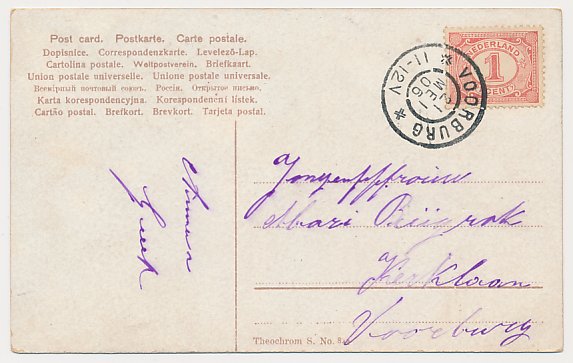 Post card. Postkarte. Carte postale.
Dopisnice. Correspondenzkarte. Levelező-Lap.
Cartolina postale. Weltpostverein. Briefkaart.
Union postale universelle. Unione postale universale.
Всемірный почтовый союзъ. Россія. Открытое письмо.
Karta korespondencyjna. Korespondenční listek.
Cartão postal. Brefkort. Brevkort. Tarjeta postal.
NEDERLAND
1
CENT
VOORBURG
11-12V
21 MEI
06
Mari
Kerklaan
Voorburg
Theochrom S. No. 8